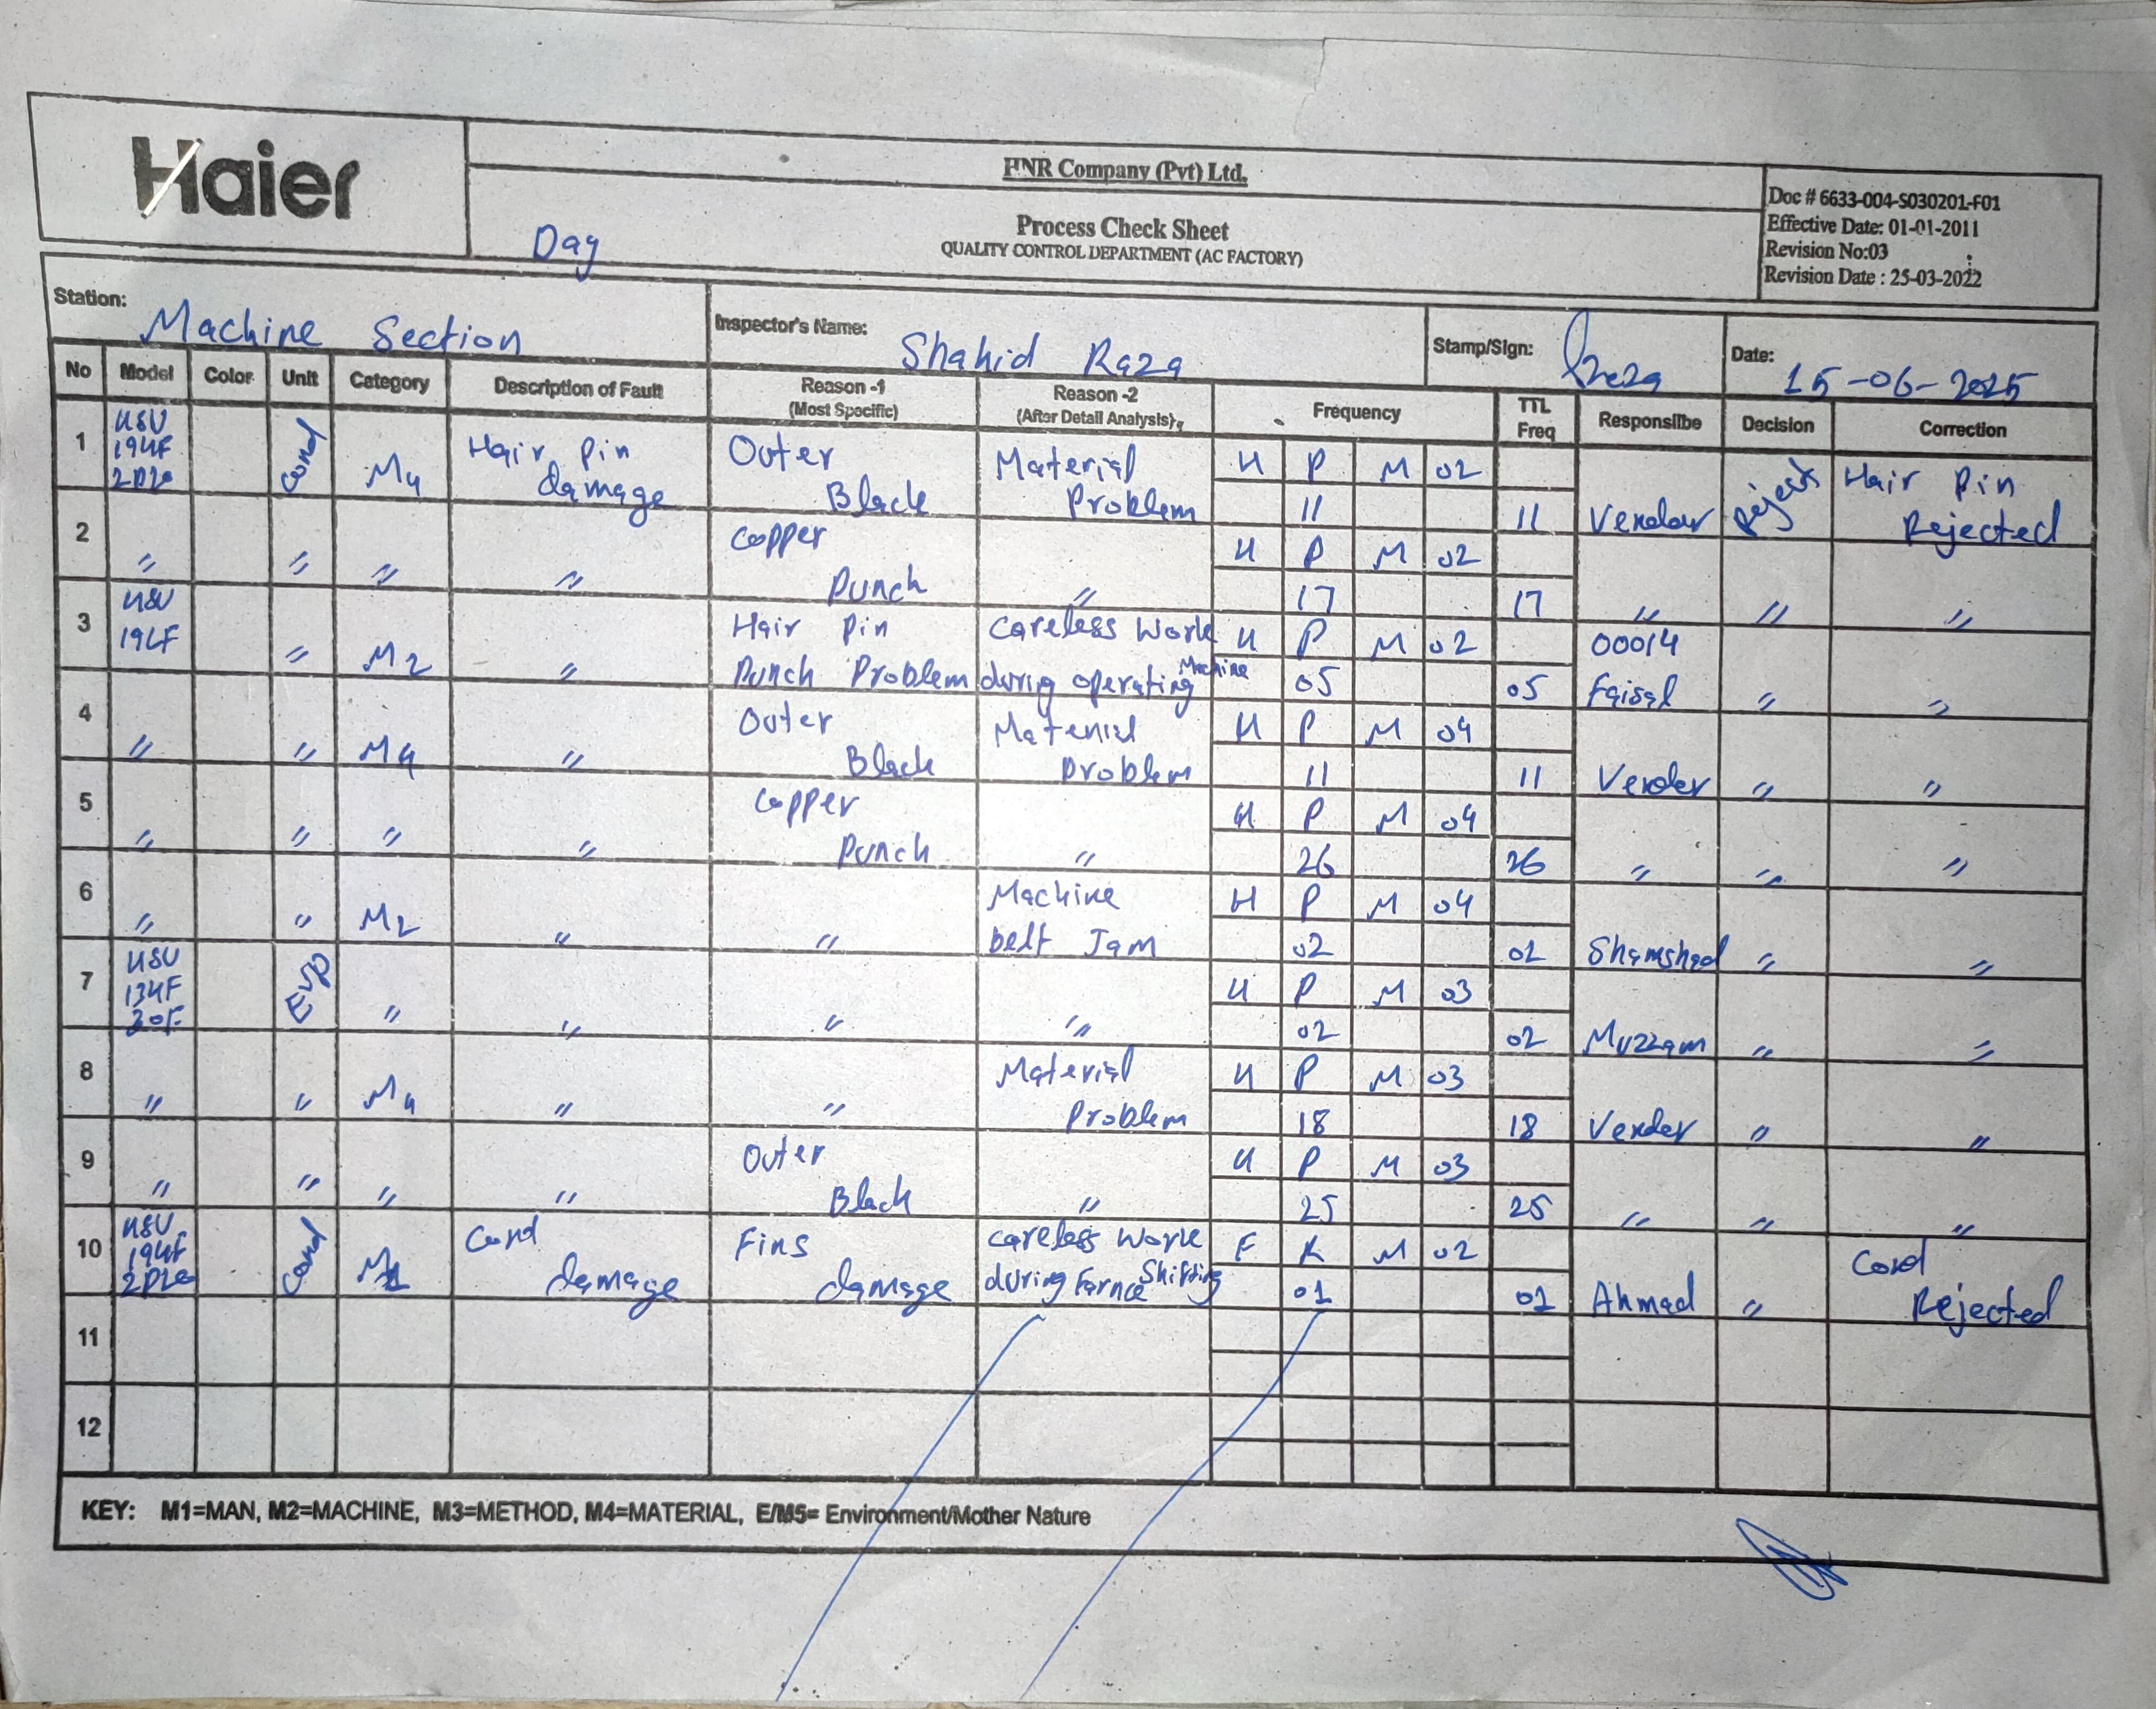 Haier
HNR Company (Pvt) Ltd.
Day
Process Check Sheet
QUALITY CONTROL DEPARTMENT (AC FACTORY)
Doc # 6633-004-S030201-F01
Effective Date: 01-01-2011
Revision No:03
Revision Date : 25-03-2022
Station: Machine Section
Inspector's Name: Shahid Raza
Stamp/Sign:
Date: 15-06-2025
No Model Color Unit Category Description of Fault Reason -1 (Most Specific) Reason -2 (After Detail Analysis) Frequency TTL Freq Responsilbe Decision Correction
1 HSU 19HF Cond M4 Hair Pin damage Outer Black Material Problem H P M 02 11 11 Vendor Reject Hair Pin Rejected
2 " " " " Copper Punch " H P M 02 17 17 " " "
3 HSU 19LF " M2 " Hair Pin Punch Problem Careless Work during operating Machine H P M 02 05 05 00014 Faisal " "
4 " " M4 " Outer Black Material Problem H P M 04 11 11 Vender " "
5 " " " " Copper Punch " H P M 04 26 26 " " "
6 " " M2 " " Machine belt Jam H P M 04 02 02 Shamshad " "
7 HSU 13HF Evap " " " " H P M 03 02 02 Muzzam " "
8 " " M4 " " Material Problem H P M 03 18 18 Vender " "
9 " " " " Outer Black " H P M 03 25 25 " " "
10 HSU 19HF Cond Cond damage Fins damage Careless Work during Farnce Shifting F K M 02 01 01 Ahmad " Cond Rejected
11
12
KEY: M1=MAN, M2=MACHINE, M3=METHOD, M4=MATERIAL, E/M5= Environment/Mother Nature